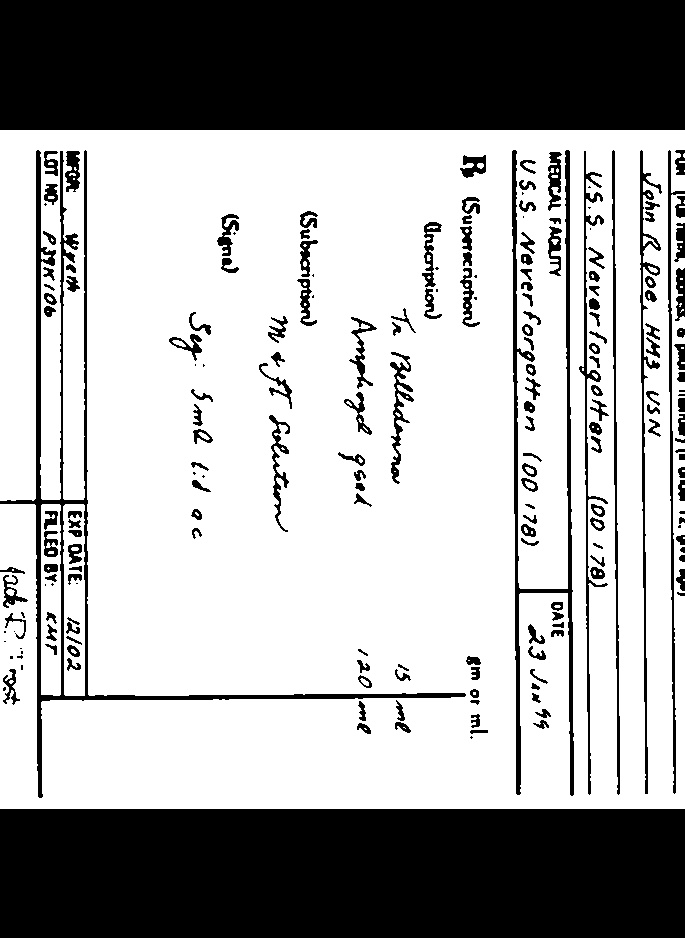 FOR (Full name, address, & phone number) (If under 12, give age)
John R Doe, HM3, USN
U.S.S. Neverforgotten (DD 178)
MEDICAL FACILITY
U.S.S. Neverforgotten (DD 178)
DATE
23 Jan 99
℞ (Superscription)
gm or ml.
(Inscription)
Tr Belladonna 15 ml
Amphogel qsad 120 ml
(Subscription)
M & Ft Solution
(Signa)
Sig: 5ml tid ac
MFGR: Wyeth
EXP DATE: 12/02
LOT NO: P39K106
FILLED BY: KMT
Jack R. Frost